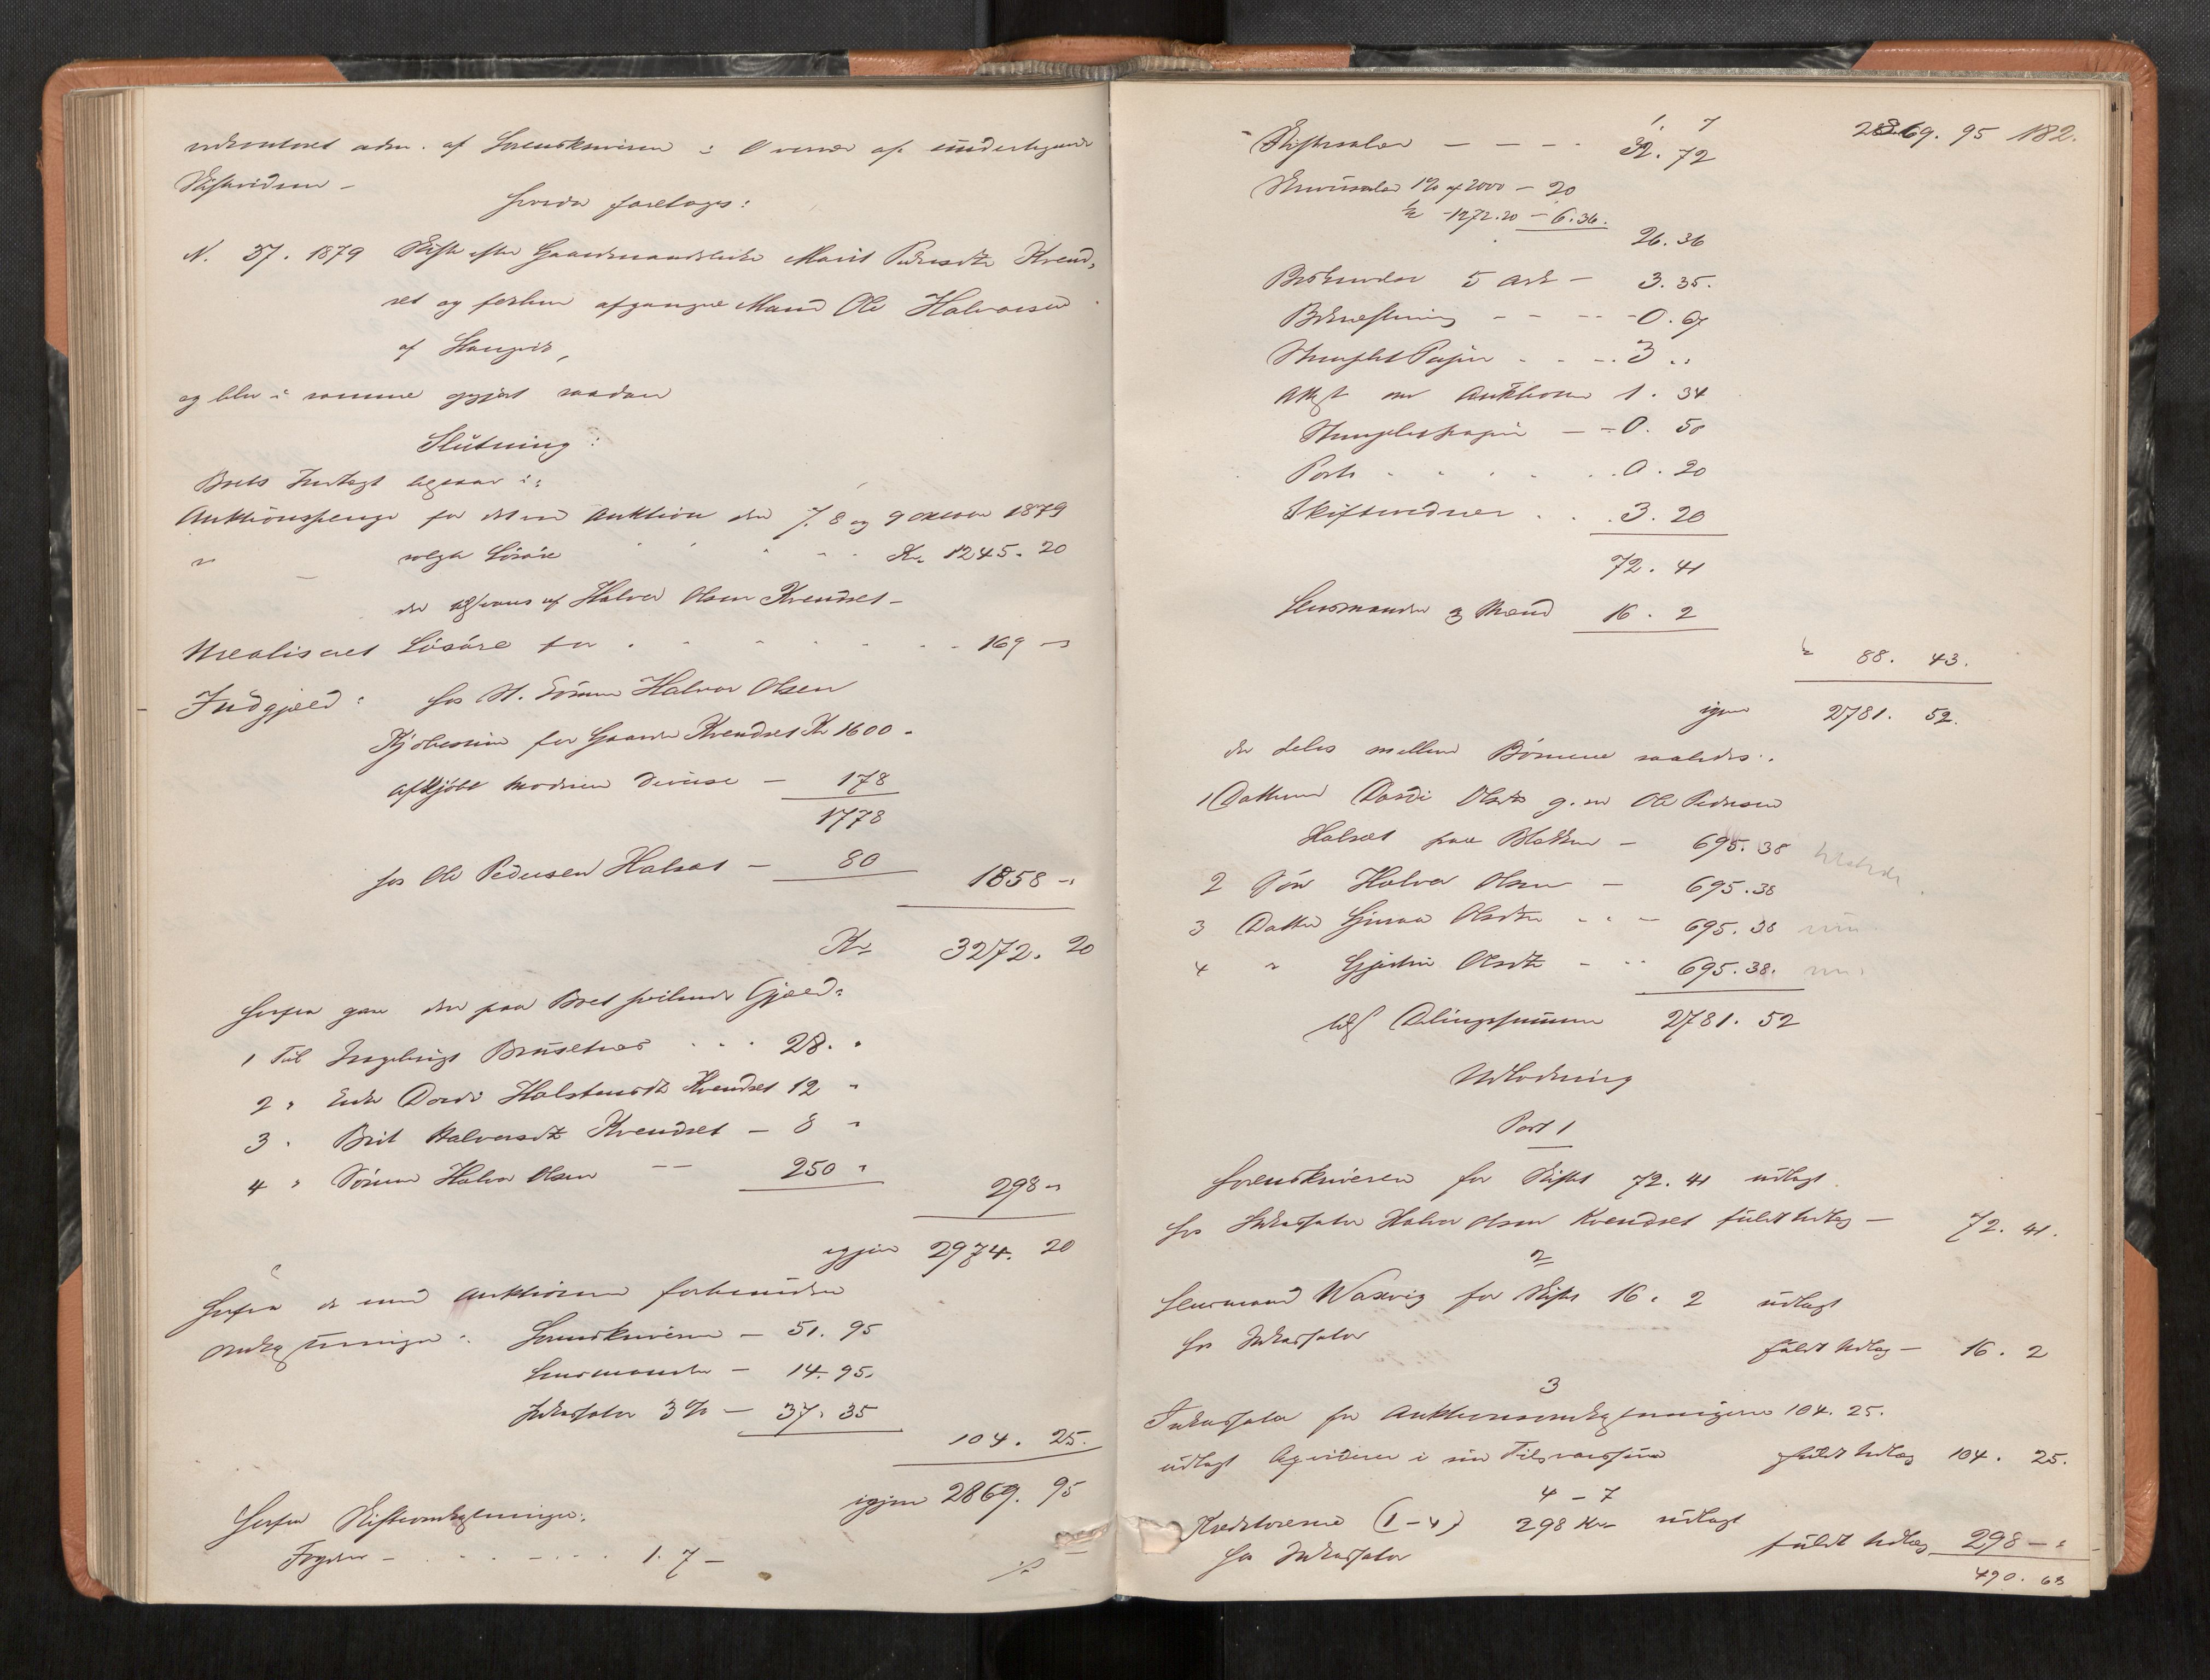 adm. af Sorenskriveren i Overvær af undertegnede
Skiftevidner –
hvorda foretages:
N. 37. 1879 Skifte efter Gaardmandsenke Marit Pedersdtr Kvend-
set og forhen afgangne Mand Ole Halvorsen
af
og blev i samme gjort saadan
Slutning:
Boets Indtægt bestaar i:
Auktionspenge for den Auktion den 7. 8 og 9 1879
" – solgte Løsøre Kr. 1245. 20
der af Halvor Olsen Kvendset –
Urealiseret Løsøre for 169 –
Indgjæld: hos St. Sønnen Halvor Olsen
Kjøbesum for Gaarden Kvendset Kr 1600 –
afkjøbt Moderen – 178
1778
hos Ole Pedersen Halset – 80 1858 –
Kr 3272. 20
Herfra gaar den paa Boet hvilende Gjæld:
1 Til Ingebrigt Bruset 28. "
2 " Enke Dordi Halstensdtr Kvendset 12 "
3 " Brit Halvorsdtr Kvendset – 8 "
4 " Sønnen Halvor Olsen – – 250 " 298 –
igjen 2974. 20
Herfra de med Auktionen forbundne
Omkostninger: Sorenskriveren – 51. 95
Lensmanden – 14. 95.
Inkassator 3% – 37. 35
104. 25.
igjen 2869. 95
Herfra Skifteomkostninger:
Fogden – 1. 7 –
2869. 95 182.
1. 7
Skiftesalær – – – 32. 72
Skrivesalær 1% af 2000 – 20
½ – 1272. 20 – 6. 36.
26. 36
Beskrivelse 5 Ark – 3. 35.
Bekræftning – – – 0. 67
Stemplet Papir . . – 3 "
Attest om Auktionen 1. 34
Stempletpapir – – 0. 50
Porto . . . . 0. 20
Skiftevidner . . 3. 20
72. 41
Lensmanden og Mænd 16. 2
88. 43.
igjen 2781. 52.
der deles mellem Børnene saaledes:
1 Datteren Dordi Olsdtr g. m Ole Pedersen
Halset paa – 695. 38
2 Søn Halvor Olsen – 695. 38
3 Datter Olsdtr – 695. 38
4 " Olsdtr – 695. 38.
Delingssummen 2781. 52
Udlodning
Post 1
Sorenskriveren for Skiftet 72. 41 udlagt
hos Inkassator Halvor Olsen Kvendset fuldt Udlæg – 72. 41.
2
Lensmand Waxvig for Skifte 16. 2 udlagt
hos Inkassator fuldt Udlæg – 16. 2
3
Inkassator for Auktionsomkostningerne 104. 25.
udlagt i sin fuldt Udlæg 104. 25.
4 – 7
Kreditorerne (1 – 4) 298 Kr udlagt
hos Inkassator fuldt Udlæg 298 –
490. 68